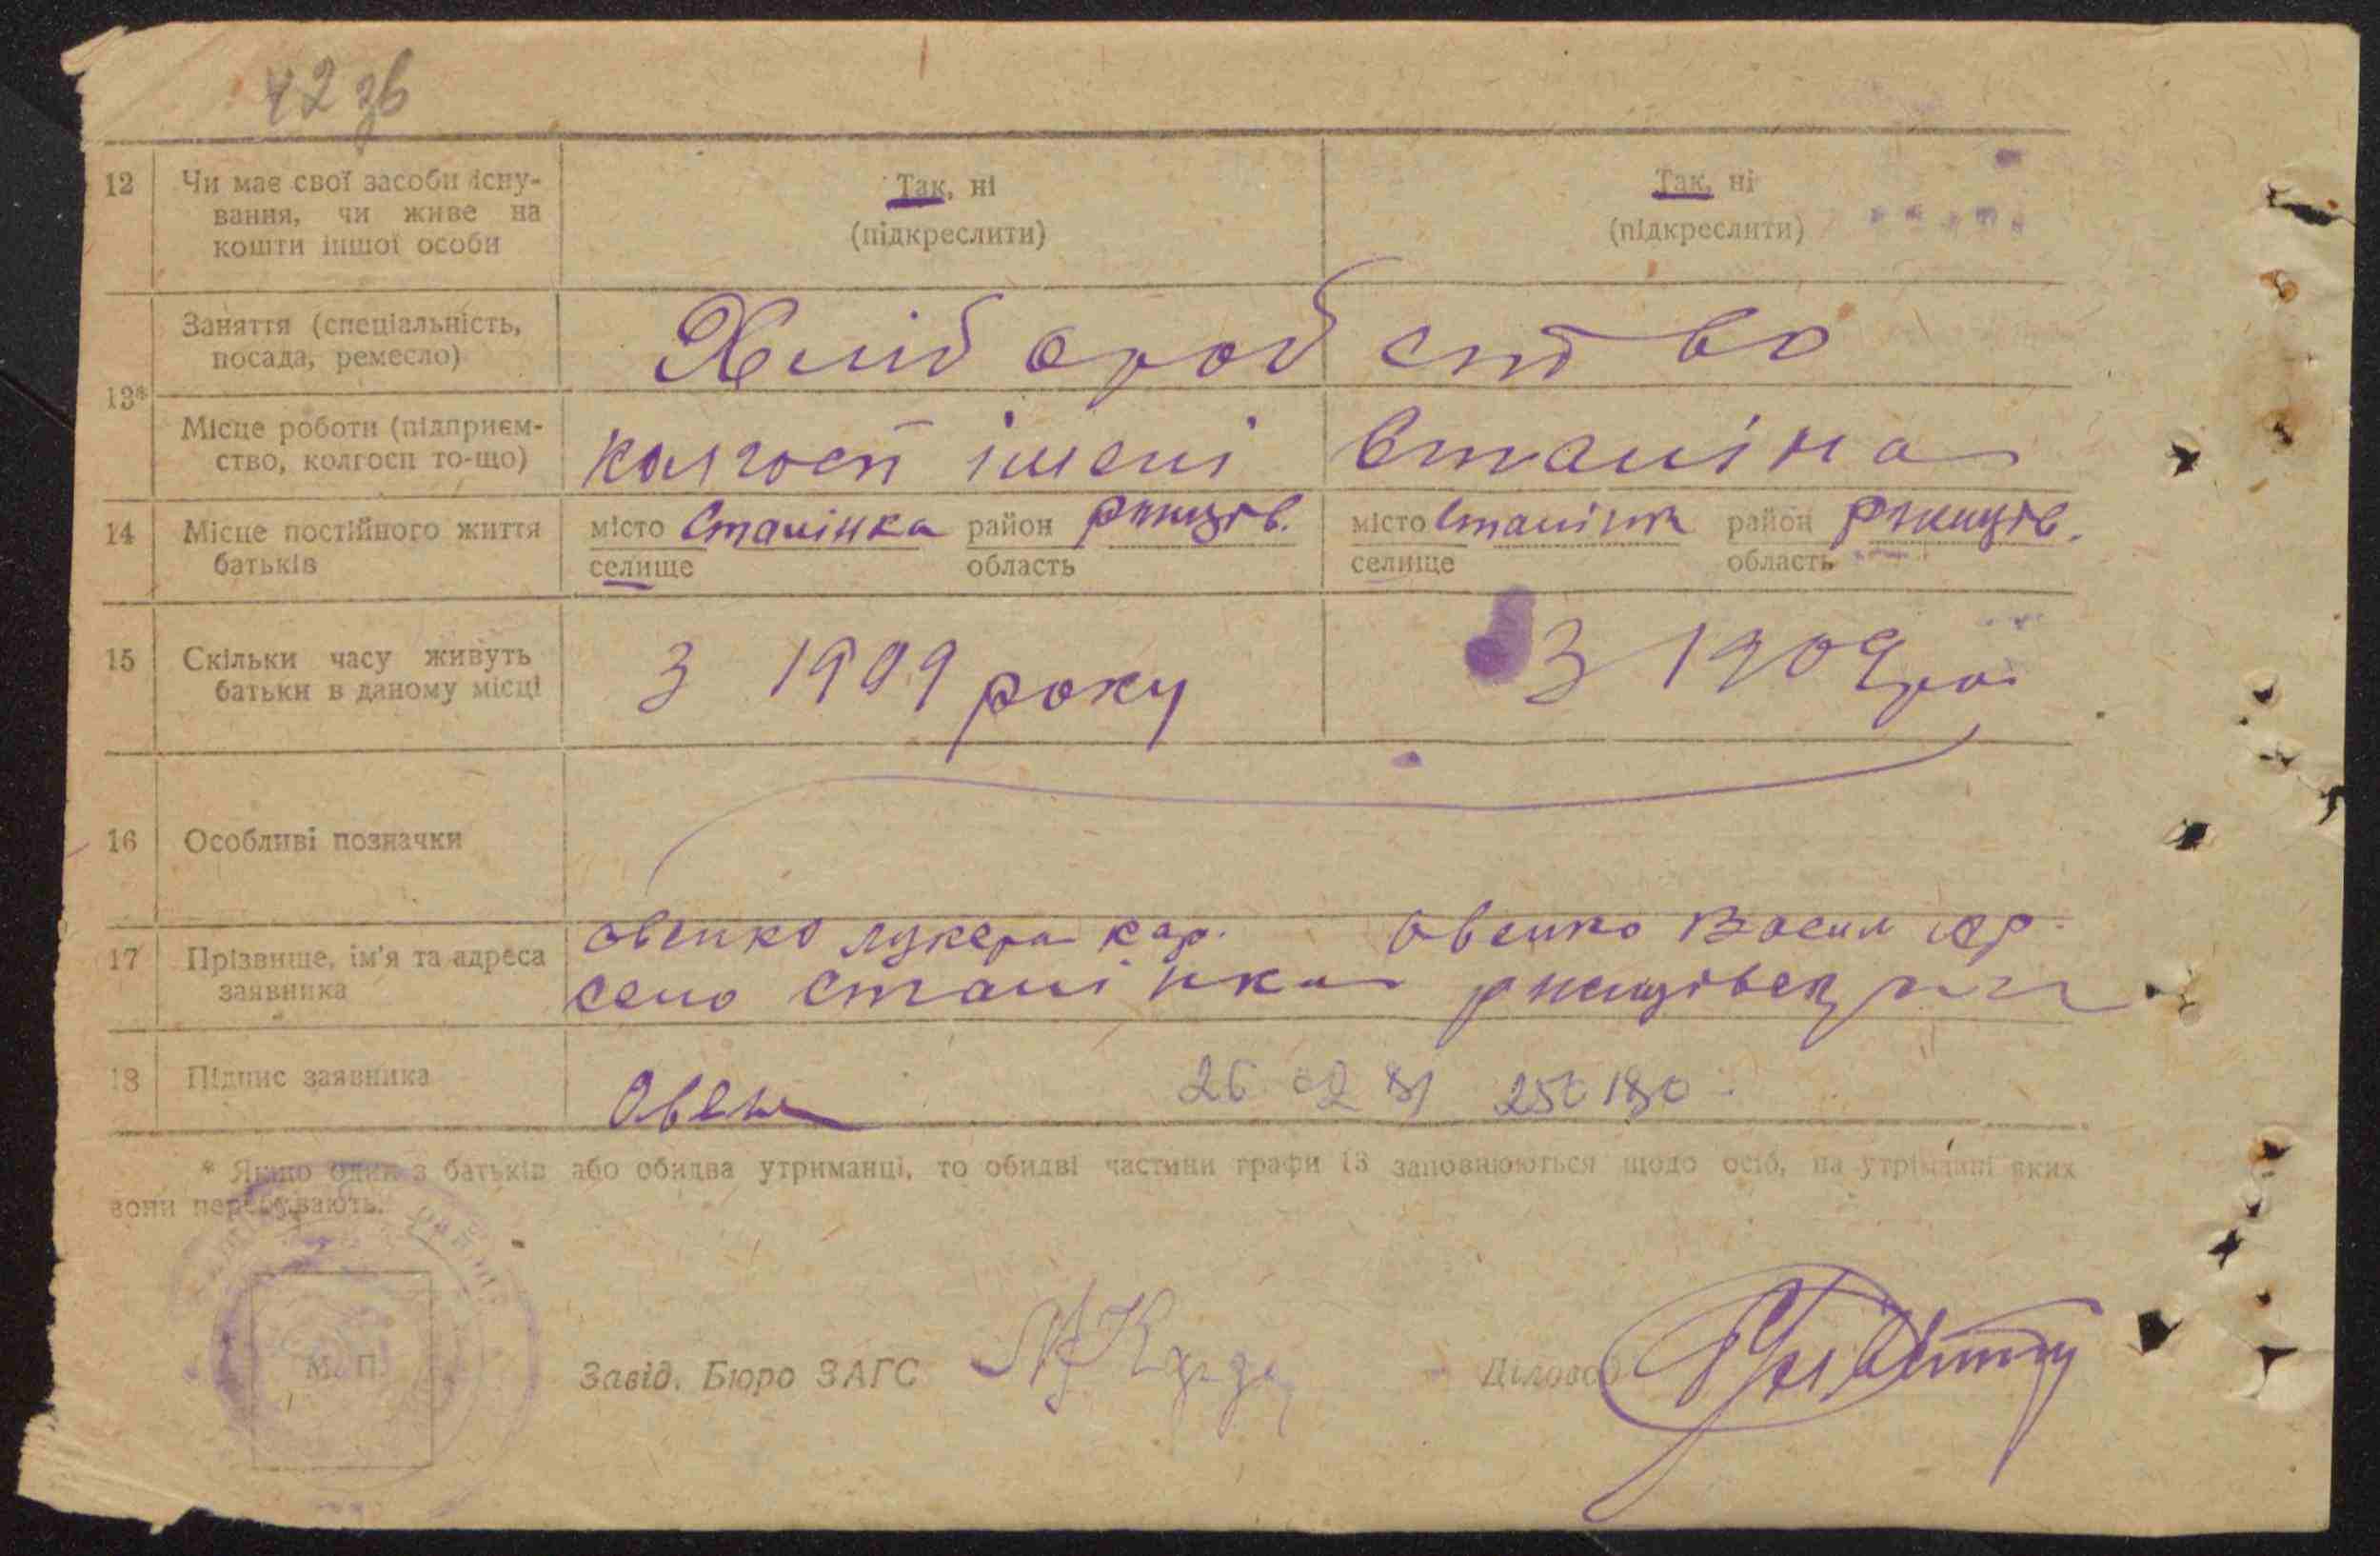 42 зв
12 Чи має свої засоби існу- Так, ні Так, ні
вання, чи живе на (підкреслити) (підкреслити)
кошти іншої особи
Заняття (спеціальність, Хлібороб ство
посада, ремесло)
13*
Місце роботи (підприєм- колгосп імені Сталіна
ство, колгосп то-що)
14 Місце постійного життя місто Сталінка район Ржищів. місто Сталінка район Ржищів.
батьків селище область селище область
15 Скільки часу живуть З 1909 року З 1909
батьки в даному місці
16 Особливі позначки
17 Прізвище, ім'я та адреса Овенко Лукера Кар. Овенко
заявника село Сталінка
18 Підпис заявника Овен 26 02
* Якщо один з батьків або обидва утриманці, то обидві частини графи 13 заповнюються щодо осіб, на утріманні яких
вони перебувають.
М. П.
Завід. Бюро ЗАГС Діловод